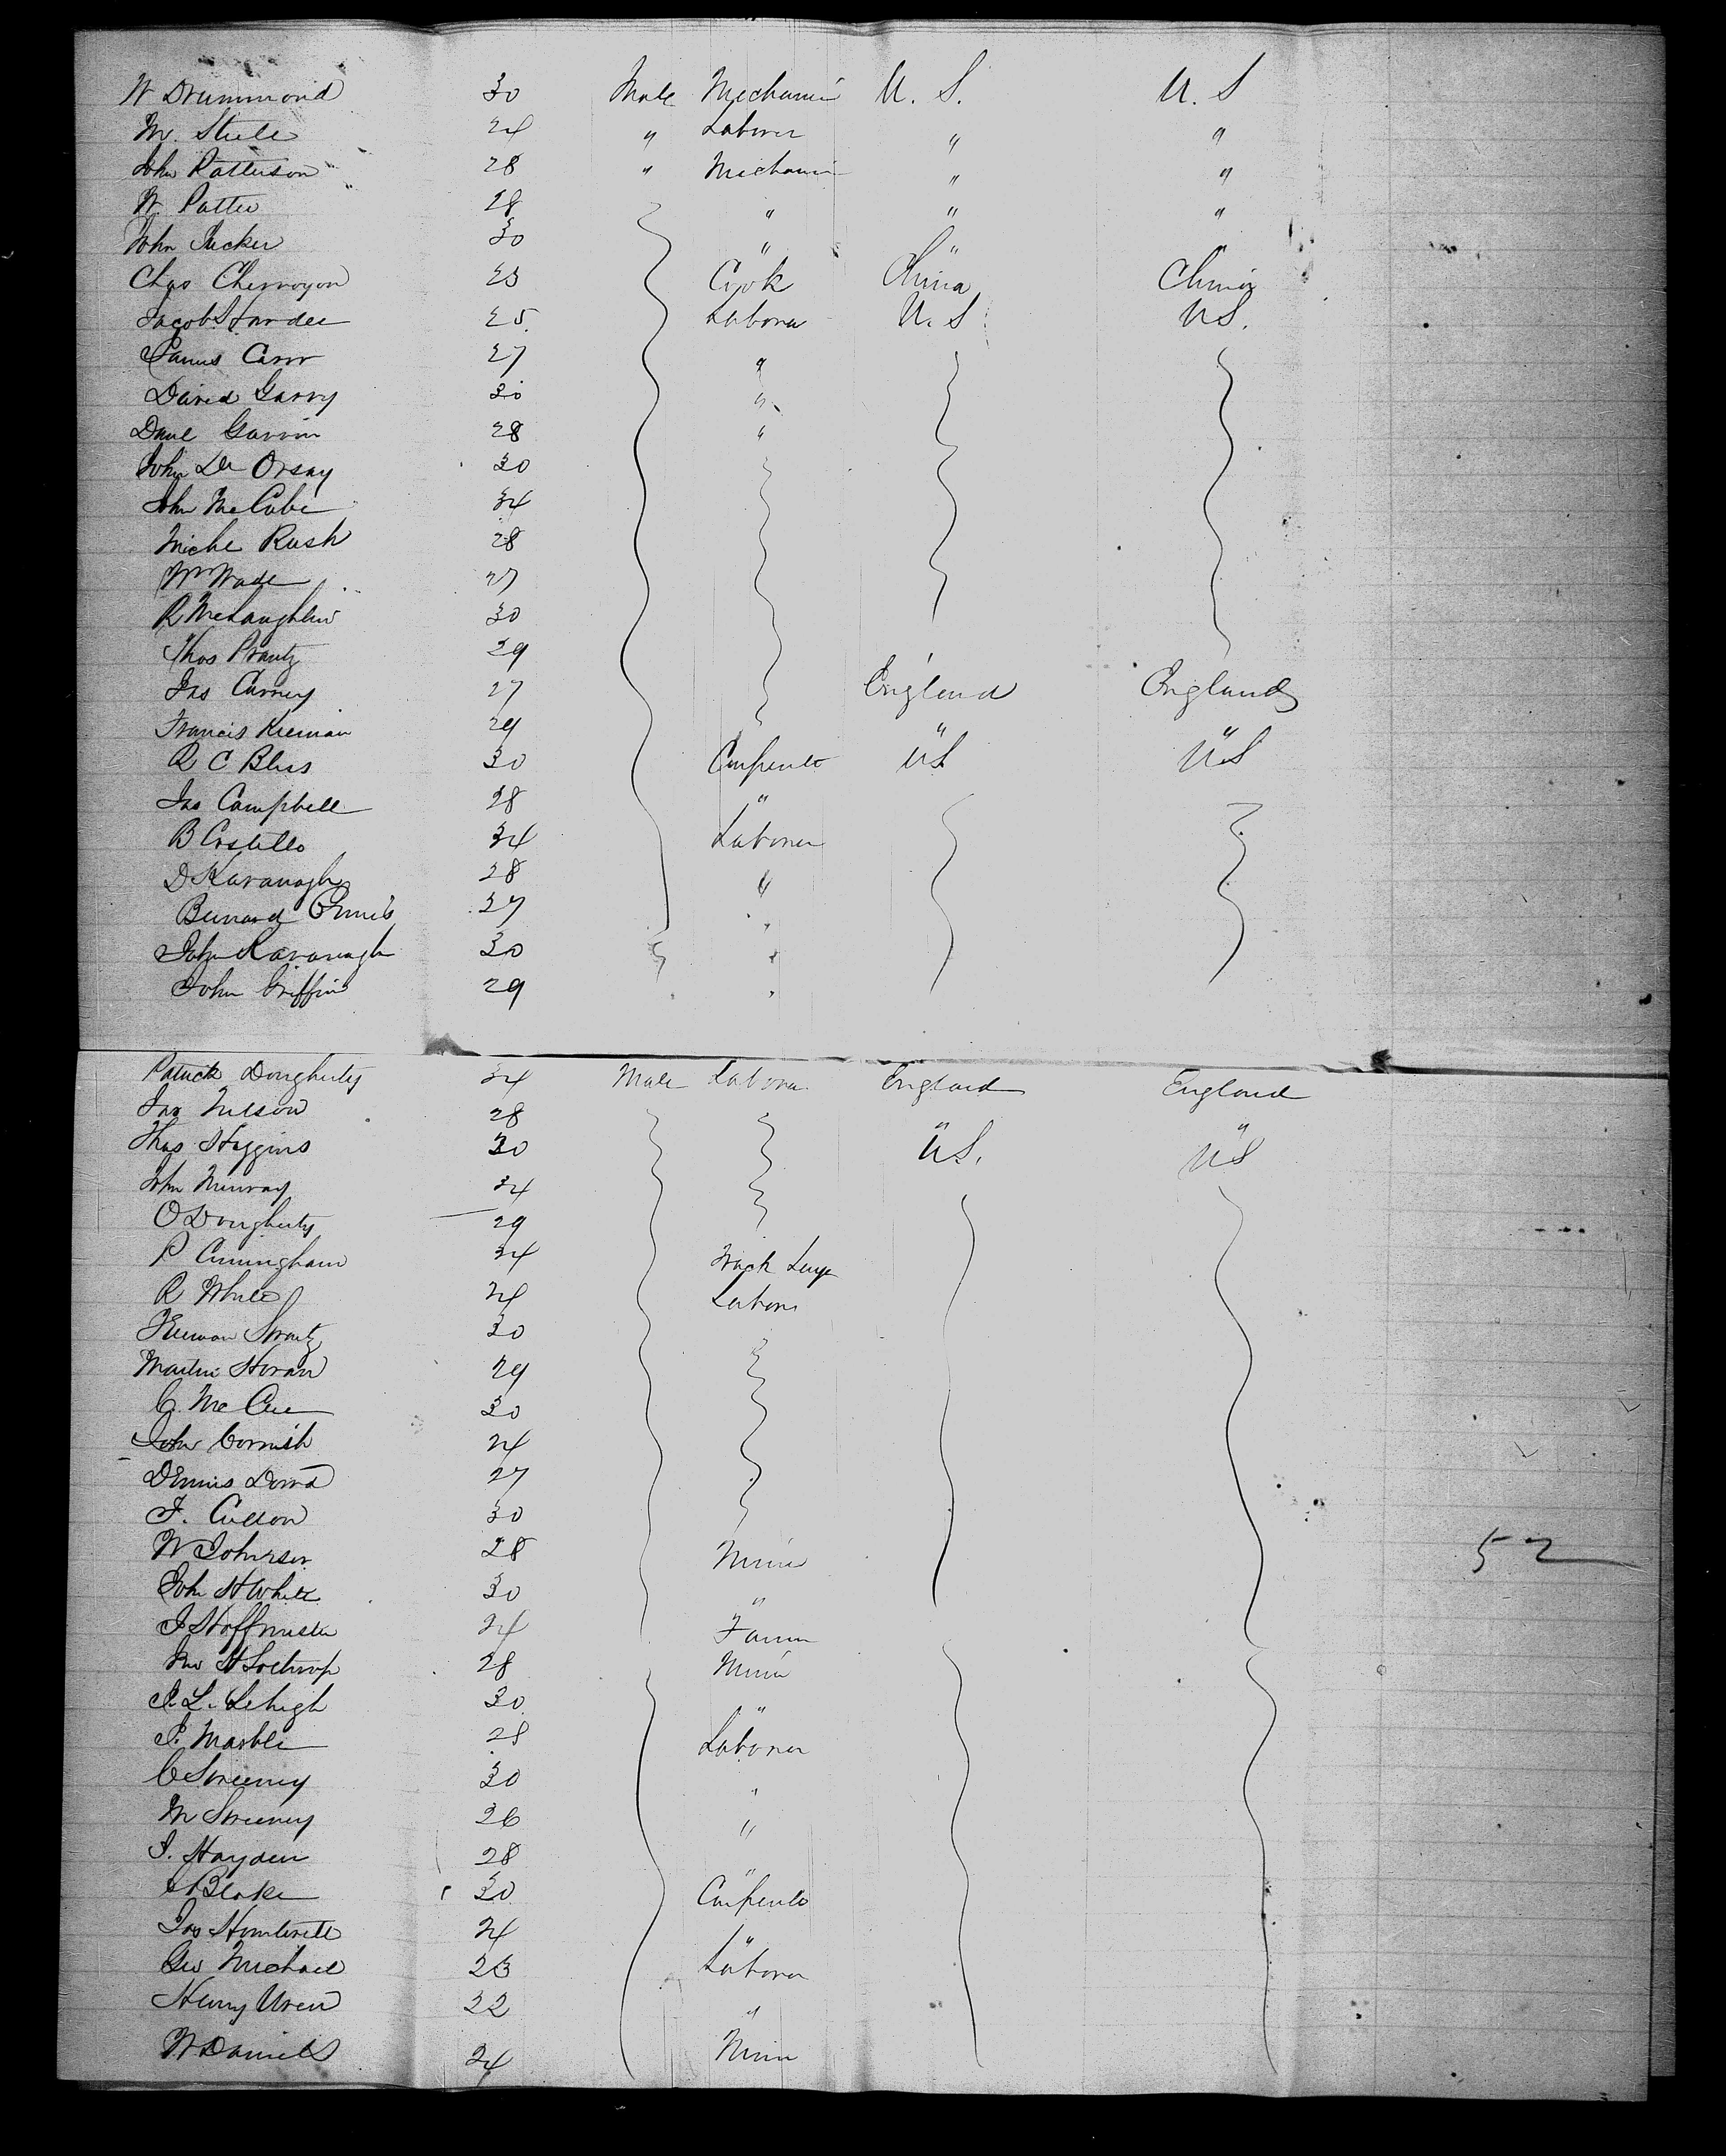 W Drummond 30 Male Mechanic U. S. U. S
M. Steele 24 " Laborer " "
John Patterson 28 " Mechanic " "
W. Potter 28 " " "
John Tucker 30 " "
Chas 23 Cook China China
Jacob 25 Laborer U. S. US.
James Carr 27 "
David Garry 30 "
Danl Gavin 28 "
John De Orsay 30
John McCabe 34
Miche Rush 28
Wm Wade 27
R McLaughlin 30
Thos Prantz 29
Jas Carney 27 England England
Francis Kiernan 29 " "
R C Bliss 30 Carpenter US US
Jas Campbell 28 "
B Costello 34 Laborer
D Kavanagh 28 "
Bernard Ennis 27 "
John Kavanagh 30 "
John Griffin 29 "
Patrick Dougherty 34 Male Laborer England England
Jas Nelson 28 " "
Thos Higgins 30 US. US
John Murray 34
O Dougherty 29
P Cunningham 34 Track
R White 24 Labore
Freeman Swartz 30
Martin Horan 29
C. McCue 30
John Cornish 24
Dennis Dowd 27
F. Cullon 30
W Johnson 28 Miner
John H White 30 "
J Hoffmister 24 Farmer
Jno H Lothrop 28 Miner
J. L. Lehigh 30 "
J. Marble 28 Laborer
C Sweeney 30 "
M Sweeney 26 "
J. Hayden 28 "
S Blake 30 Carpenter
Jas 24 "
Geo Michael 23 Laborer
Henry Uren 22 "
W Daniels 24 Miner
52